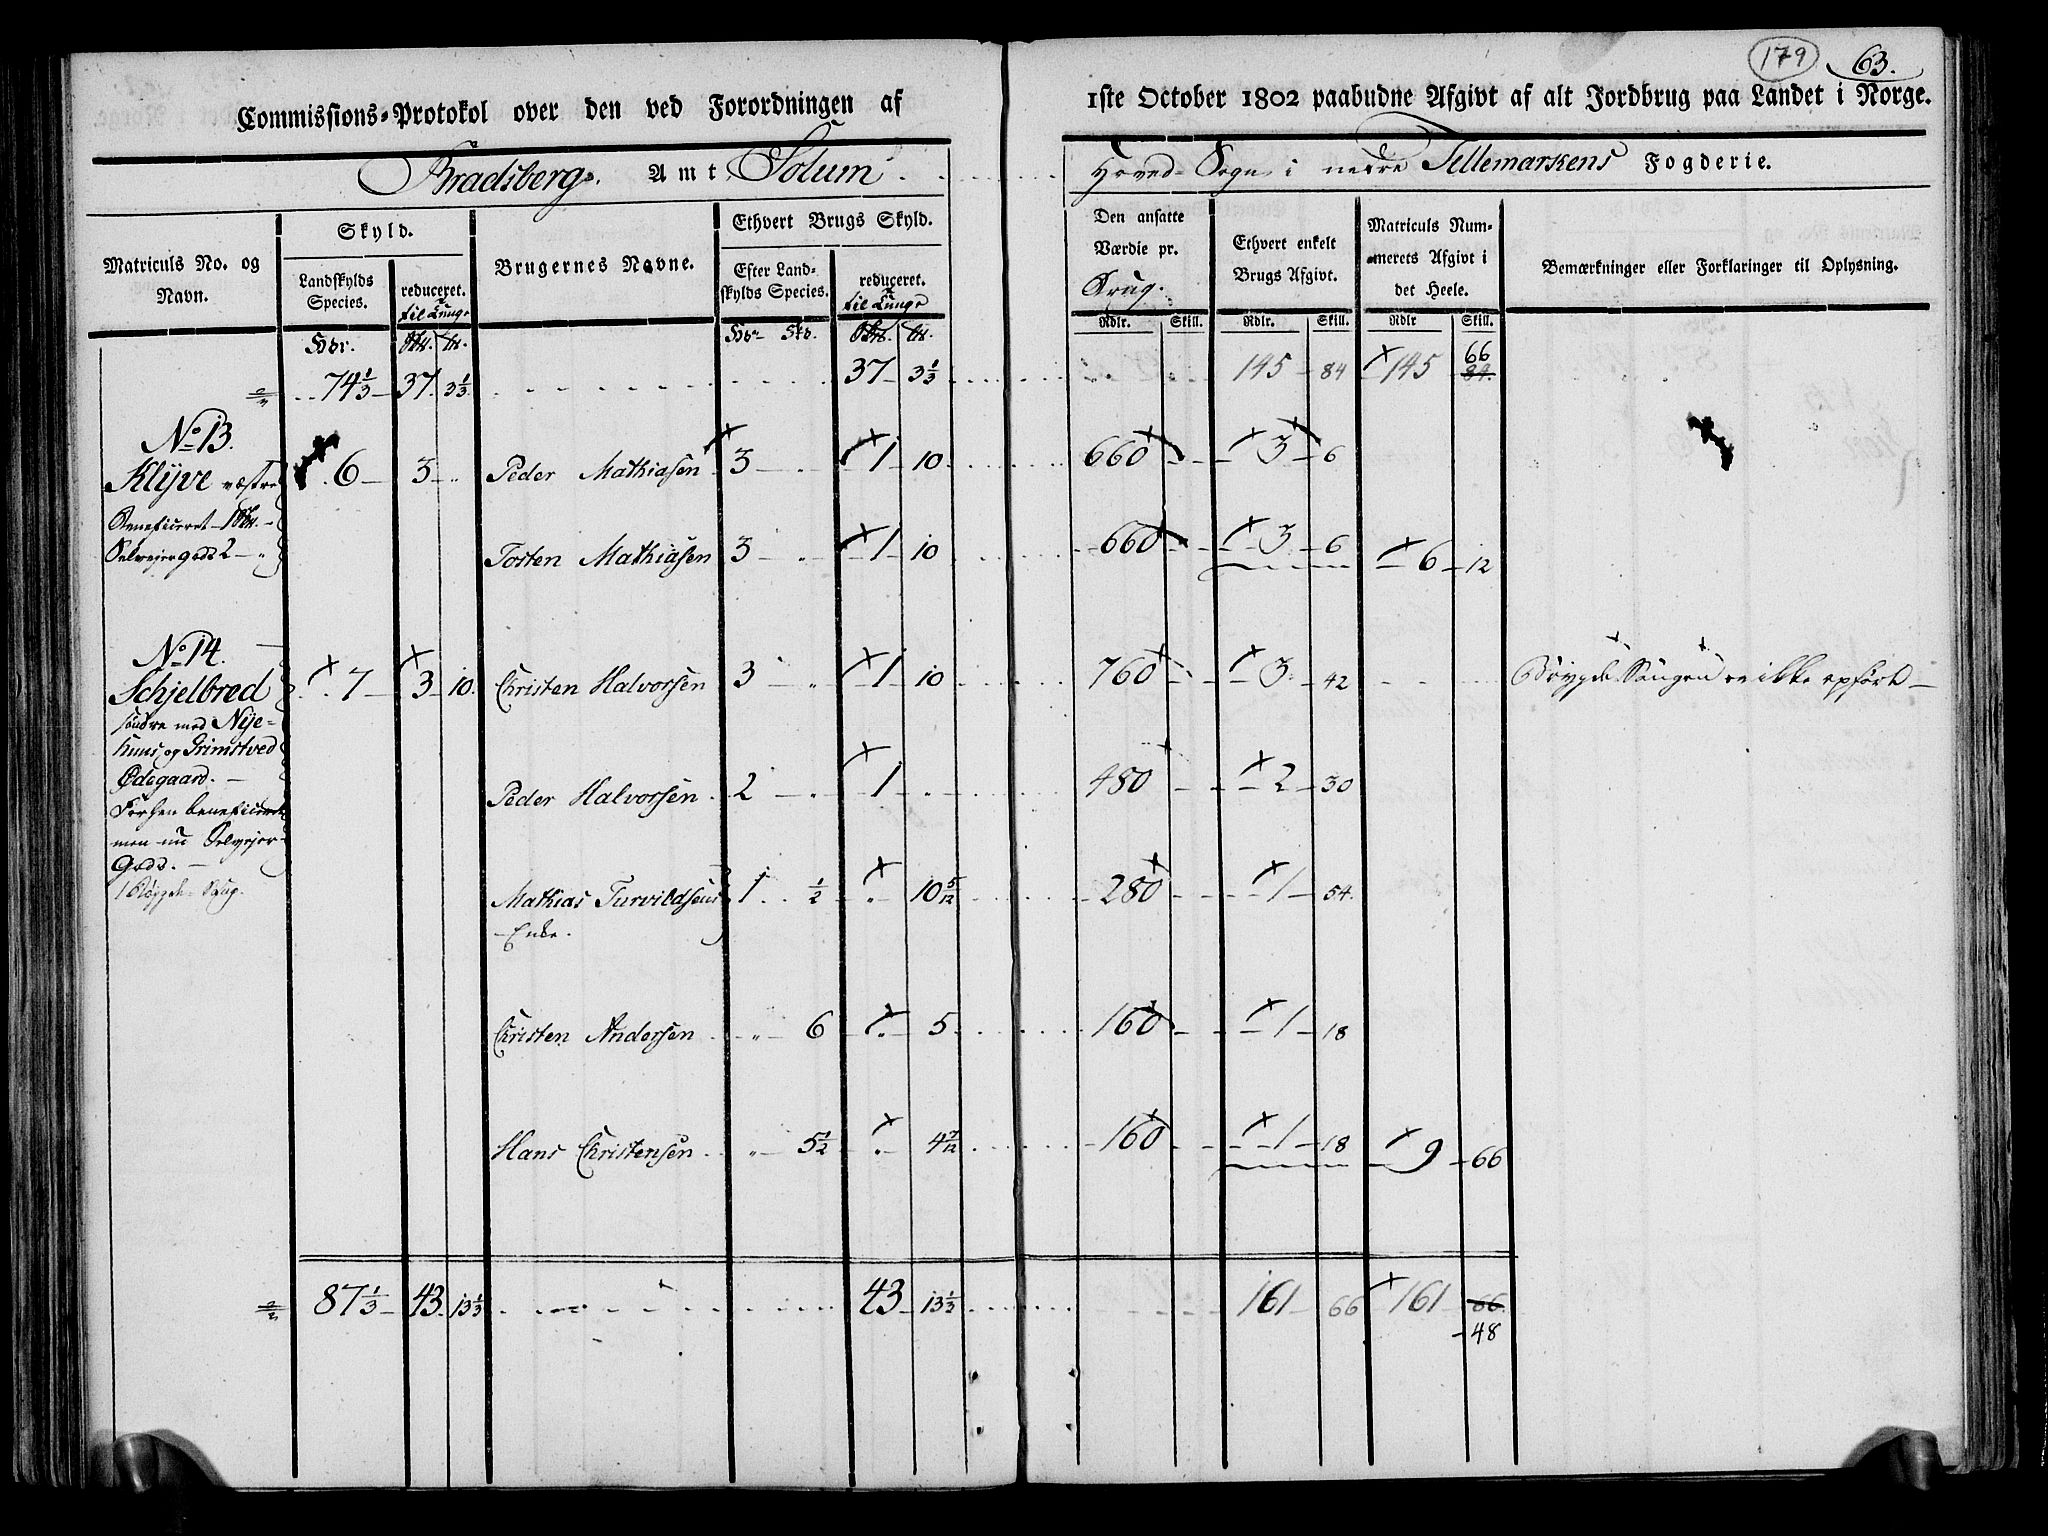 179 63.
Commissions-Protokol over den ved Forordningen af 1ste October 1802 paabudne Afgivt af alt Jordbrug paa Landet i Norge.
Bradsberg Amt Solum Hoved-Sogn i nedre Tellemarkens Fogderie.
Matriculs No. og Navn.
Skyld.
Landskylds Species.
reduceret. til Tunge
Brugernes Navne.
Ethvert Brugs Skyld.
Efter Landskylds Species.
reduceret. til Tunge
Den ansatte Værdie pr. Brug.
Ethvert enkelt Brugs Afgivt.
Matriculs Nummerets Afgivt i det Heele.
Bemærkninger eller Forklaringer til Oplysning.
Rdlr. Skill. Rdlr. Skill. Rdlr Skill.
74 1/3 37. 3 1/3 37 3 1/3 145 84 145 84. 66
No 13.
Klyve vestre 6 3 Peder Mathiasen 3 1 10 660 3 6
Beneficeret
Selveiergods 2 Tosten Mathiasen 3 1 10 660 3 6 6 12
No 14.
Schjelbred 7 3 10. Christen Halvorsen 3 1 10 760 3 42 Bøygde Saugen er ikke opført
søndre med Nye-
huus og Grimstved
Ødegaard. Peder Halvorsen 2 1 480 2 30
Forhen beneficeret
men nu Selveier-
Gods.
1 Bøygde-Saug. Mathias Turvildsens 1 1/2 10 5/12 280 1 54.
Enke.
Christen Andersen 6 5 160 1 18
Hans Christensen 5 1/2 4 7/12 160 1 18 9 66
87 1/3 43 13 1/3 43 13 1/3 161 66 161 66.
48